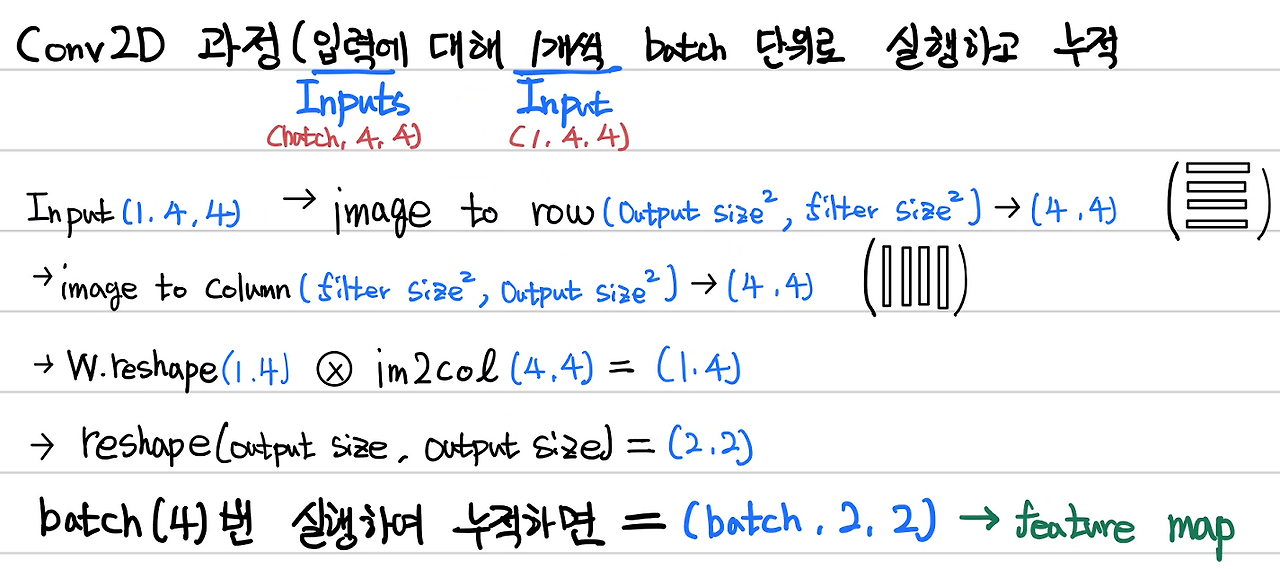 Conv2D 과정(입력에 대해 1개씩 batch 단위로 실행하고 누적
Inputs Input
(batch, 4, 4) (1, 4, 4)
Input(1, 4, 4) → image to row(Output size², filter size²) → (4, 4)
→ image to column(filter size², Output size²) → (4, 4)
→ W.reshape(1.4) ⊗ im2col(4,4) = (1.4)
→ reshape(output size, output size) = (2,2)
batch(4)번 실행하여 누적하면 = (batch, 2, 2) → feature map